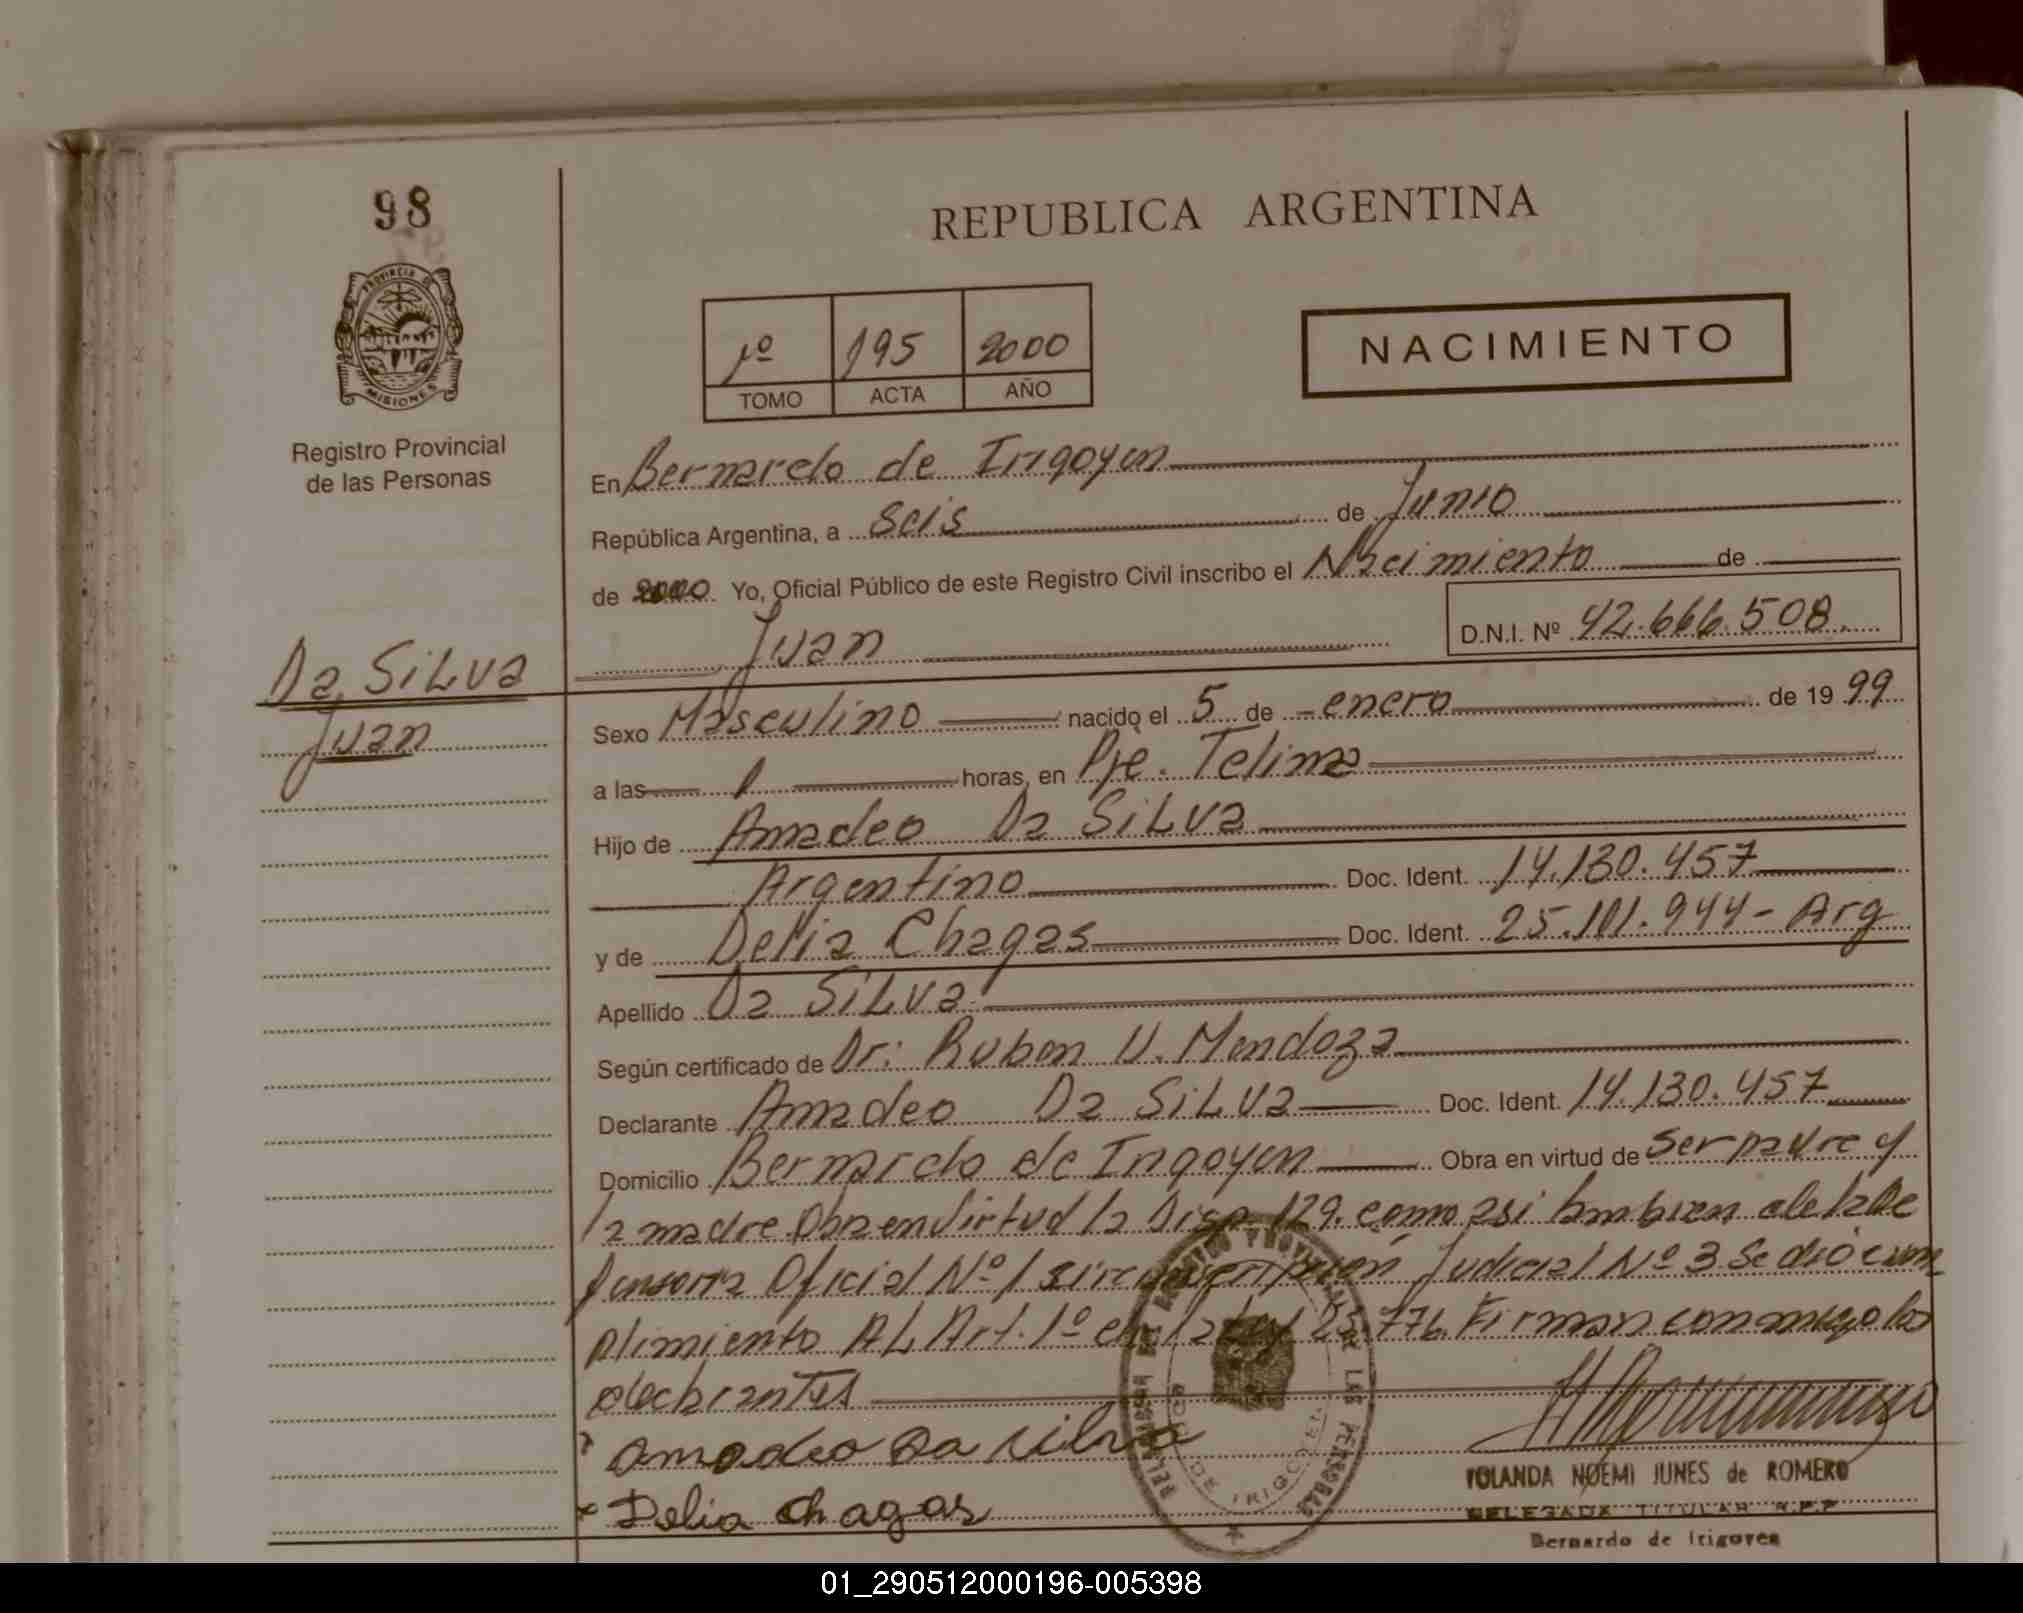 98
PROVINCIA DE
MISIONES
Registro Provincial
de las Personas
Da SiLva
Juan
REPUBLICA ARGENTINA
1º 195 2000
TOMO ACTA AÑO
NACIMIENTO
En Bernardo de Irigoyen
República Argentina, a Seis de Junio
de 2000 Yo, Oficial Público de este Registro Civil inscribo el Nacimiento de
Juan D.N.I. Nº 42.666.508.
Sexo Masculino nacido el 5 de enero de 19 99
a las 1 horas, en Pje. Telima
Hijo de Amadeo Da SiLva
Argentino Doc. Ident. 14.130.457
y de Delia Chagas Doc. Ident. 25.101.944 - Arg
Apellido Da SiLva
Según certificado de Dr: Ruben U. Mendoza
Declarante Amadeo Da SiLva Doc. Ident. 14.130.457
Domicilio Bernardo de Irigoyen Obra en virtud de ser padre y
la madre. Obra en virtud la Disp. 129. como asi tambien de la De
fensoria Oficial Nº 1 Judicial Nº 3 Se dió cum
plimiento AL Art. 1º de la Ley 25.776. Firman conmigo los
declarantes
Amadeo Da Silva
Delia Chagas
DE IRIGOYEN
YOLANDA NOEMI JUNES de ROMERO
DELEGADA TITULAR R.P.P
Bernardo de Irigoyen
01_290512000196-005398